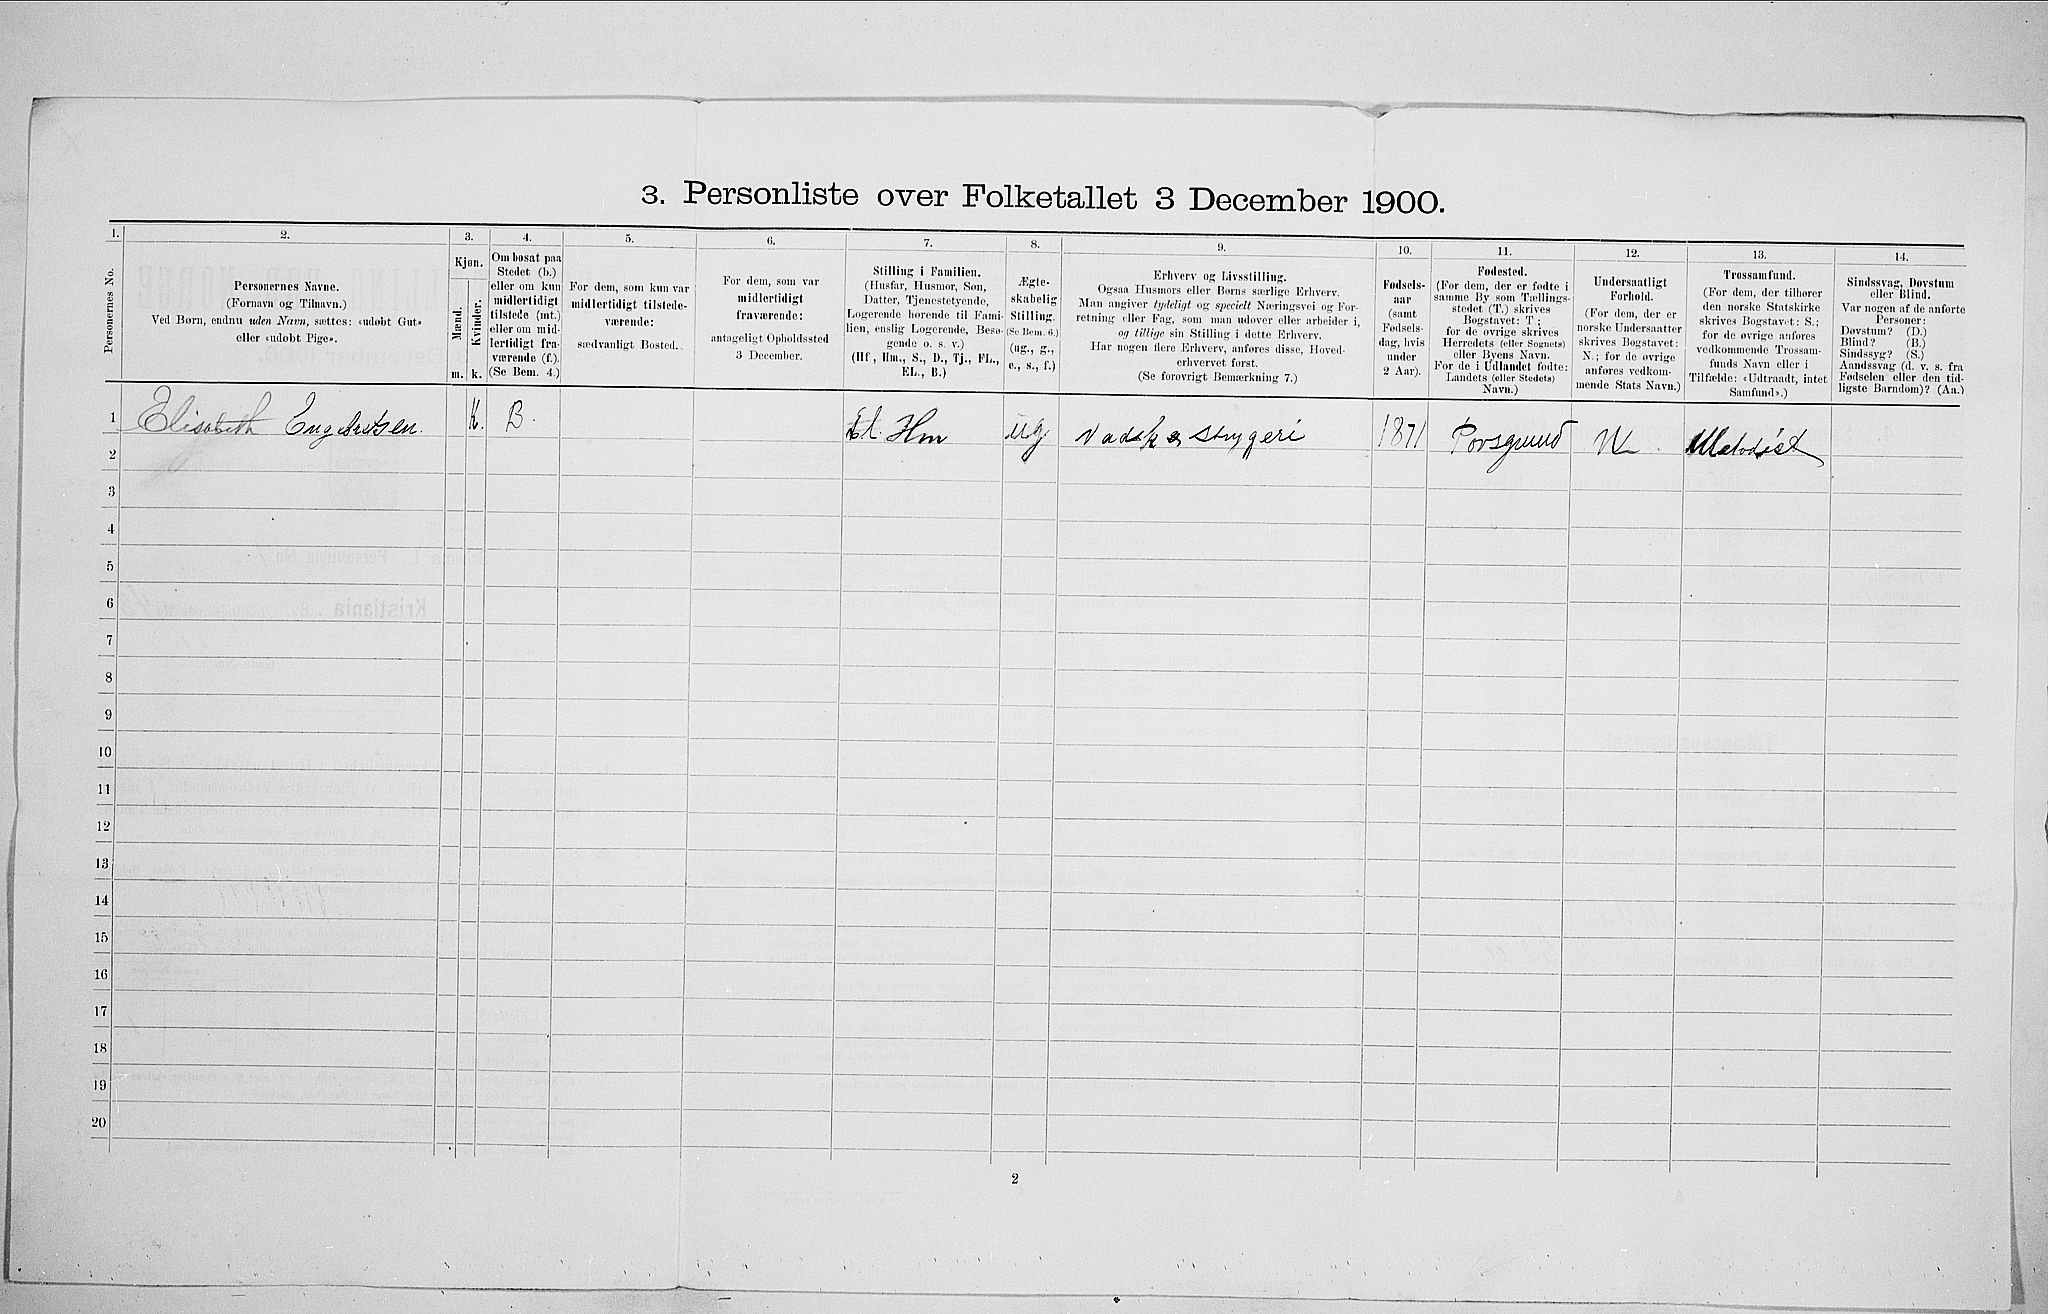 3. Personliste over Folketallet 3 December 1900.
1. 2. 3. 4. 5. 6. 7. 8. 9. 10. 11. 12. 13. 14.
Personernes No.
Personernes Navne.
(Fornavn og Tilnavn.)
Ved Børn, endnu uden Navn, sættes: «udøbt Gut»
eller «udøbt Pige».
Kjøn.
Mænd.
Kvinder.
m. k.
Om bosat paa
Stedet (b.)
eller om kun
midlertidigt
tilstede (mt.)
eller om mid-
lertidigt fra-
værende (f.).
(Se Bem. 4.)
For dem, som kun var
midlertidigt tilstede-
værende:
sædvanligt Bosted.
For dem, som var
midlertidigt
fraværende:
antageligt Opholdssted
3 December.
Stilling i Familien.
(Husfar, Husmor, Søn,
Datter, Tjenestetyende,
Logerende hørende til Fami-
lien, enslig Logerende, Besø-
gende o. s. v.)
(Hf, Hm., S., D., Tj., FL.,
EL., B.)
Ægte-
skabelig
Stilling.
(Se Bem. 6.)
(ug., g.,
e., s., f.)
Erhverv og Livsstilling.
Ogsaa Husmors eller Børns særlige Erhverv.
Man angiver tydeligt og specielt Næringsvei og For-
retning eller Fag, som man udøver eller arbeider i,
og tillige sin Stilling i dette Erhverv.
Har nogen flere Erhverv, anføres disse, Hoved-
erhvervet først.
(Se forøvrigt Bemærkning 7.)
Fødsels-
aar
(samt
Fødsels-
dag, hvis
under
2 Aar).
Fødested.
(For dem, der er fødte i
samme By som Tællings-
stedet (T.) skrives
Bogstavet: T;
for de øvrige skrives
Herredets (eller Sognets)
eller Byens Navn.
For de i Udlandet fødte:
Landets (eller Stedets)
Navn.)
Undersaatligt
Forhold.
(For dem, der er
norske Undersaatter
skrives Bogstavet:
N.; for de øvrige
anføres vedkom-
mende Stats Navn.)
Trossamfund.
(For dem, der tilhører
den norske Statskirke
skrives Bogstavet: S.;
for de øvrige anføres
vedkommende Trossam-
funds Navn eller i
Tilfælde: «Udtraadt, intet
Samfund».)
Sindssvag, Døvstum
eller Blind.
Var nogen af de anførte
Personer:
Døvstum? (D.)
Blind? (B.)
Sindssyg? (S.)
Aandssvag (d. v. s. fra
Fødselen eller den tid-
ligste Barndom)? (Aa.)
1 Elisabeth Engebretsen. K. B. El. Hm ug Vadsk og Strygeri 1871 Porsgrund N. Metodist
2
3
4
5
6
7
8
9
10
11
12
13
14
15
16
17
18
19
20
2